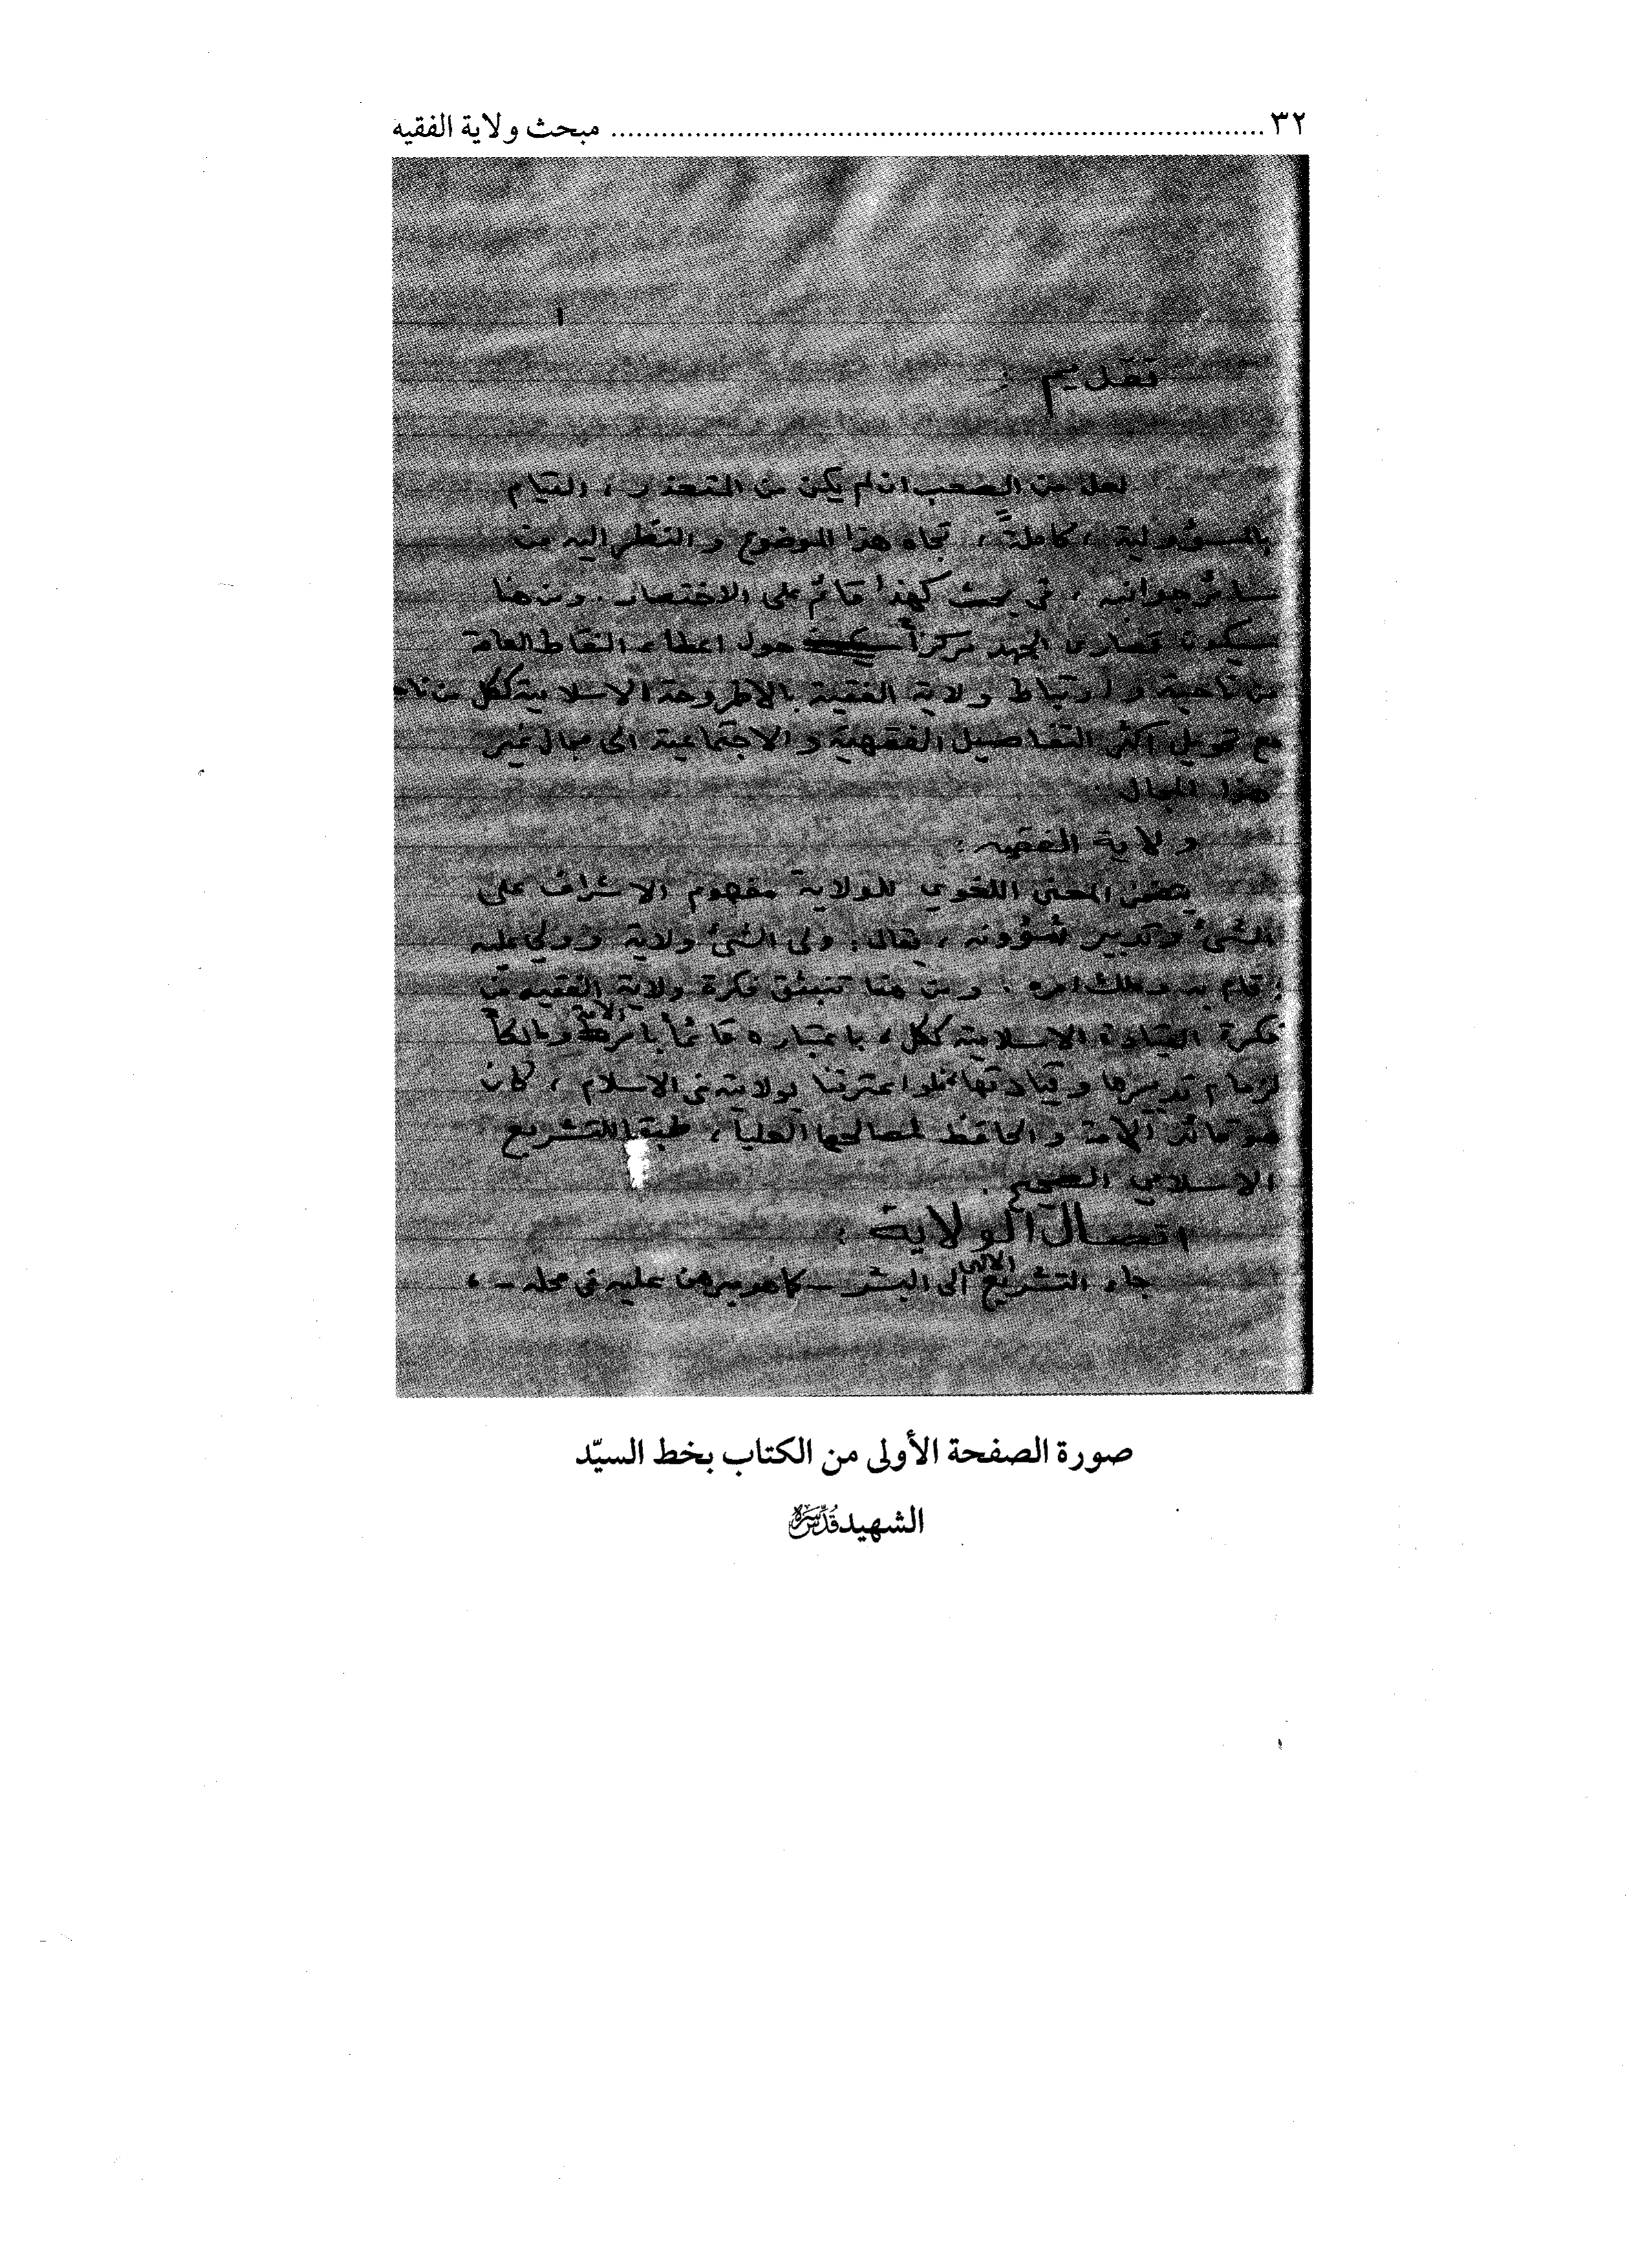 ٣٢ ........................................................................ مبحث ولاية الفقيه
١
تقديم :
لعل من الصعب ان لم يكن من المتعذر ، القيام
بالمسؤولية ، كاملةً ، تجاه هذا الموضوع و النظر اليه من
سائر جوانبه ، في بحث كهذا قائم على الاختصار . ومن هنا
سيكون قصارى الجهد مركزاً حول اعطاء النقاط العامة
من ناحية و ارتباط ولاية الفقيه بالاطروحة الاسلامية ككل من ناحـ
مع تحويل اكثر التفاصيل الفقهية و الاجتماعية الى مجال غير
هذا المجال .
ولاية الفقيه :
يتضمن المعنى اللغوي للولاية مفهوم الاشراف على
الشيء وتدبير شؤونه ، يقال : ولي الشيء ولاية و ولي عليه
: قام به وملك امره . ومن هنا تنبثق فكرة ولاية الفقيه من
فكرة القيادة الاسلامية ككل ، باعتباره قائماً بامر الامة ومالكاً
لزمام تدبيرها وقيادتها فلو اعترفنا بولايته في الاسلام ، كان
هو قائد الامة و الحافظ لمصالحها العليا ، طبقاً للتشريع
الاسلامي الصحيح .
اتصال الولاية :
جاء التشريع الالهي الى البشر – كما هو مبرهن عليه في محله – ،
صورة الصفحة الأولى من الكتاب بخط السيّد
الشهيد قُدِّسَ سِرُّه